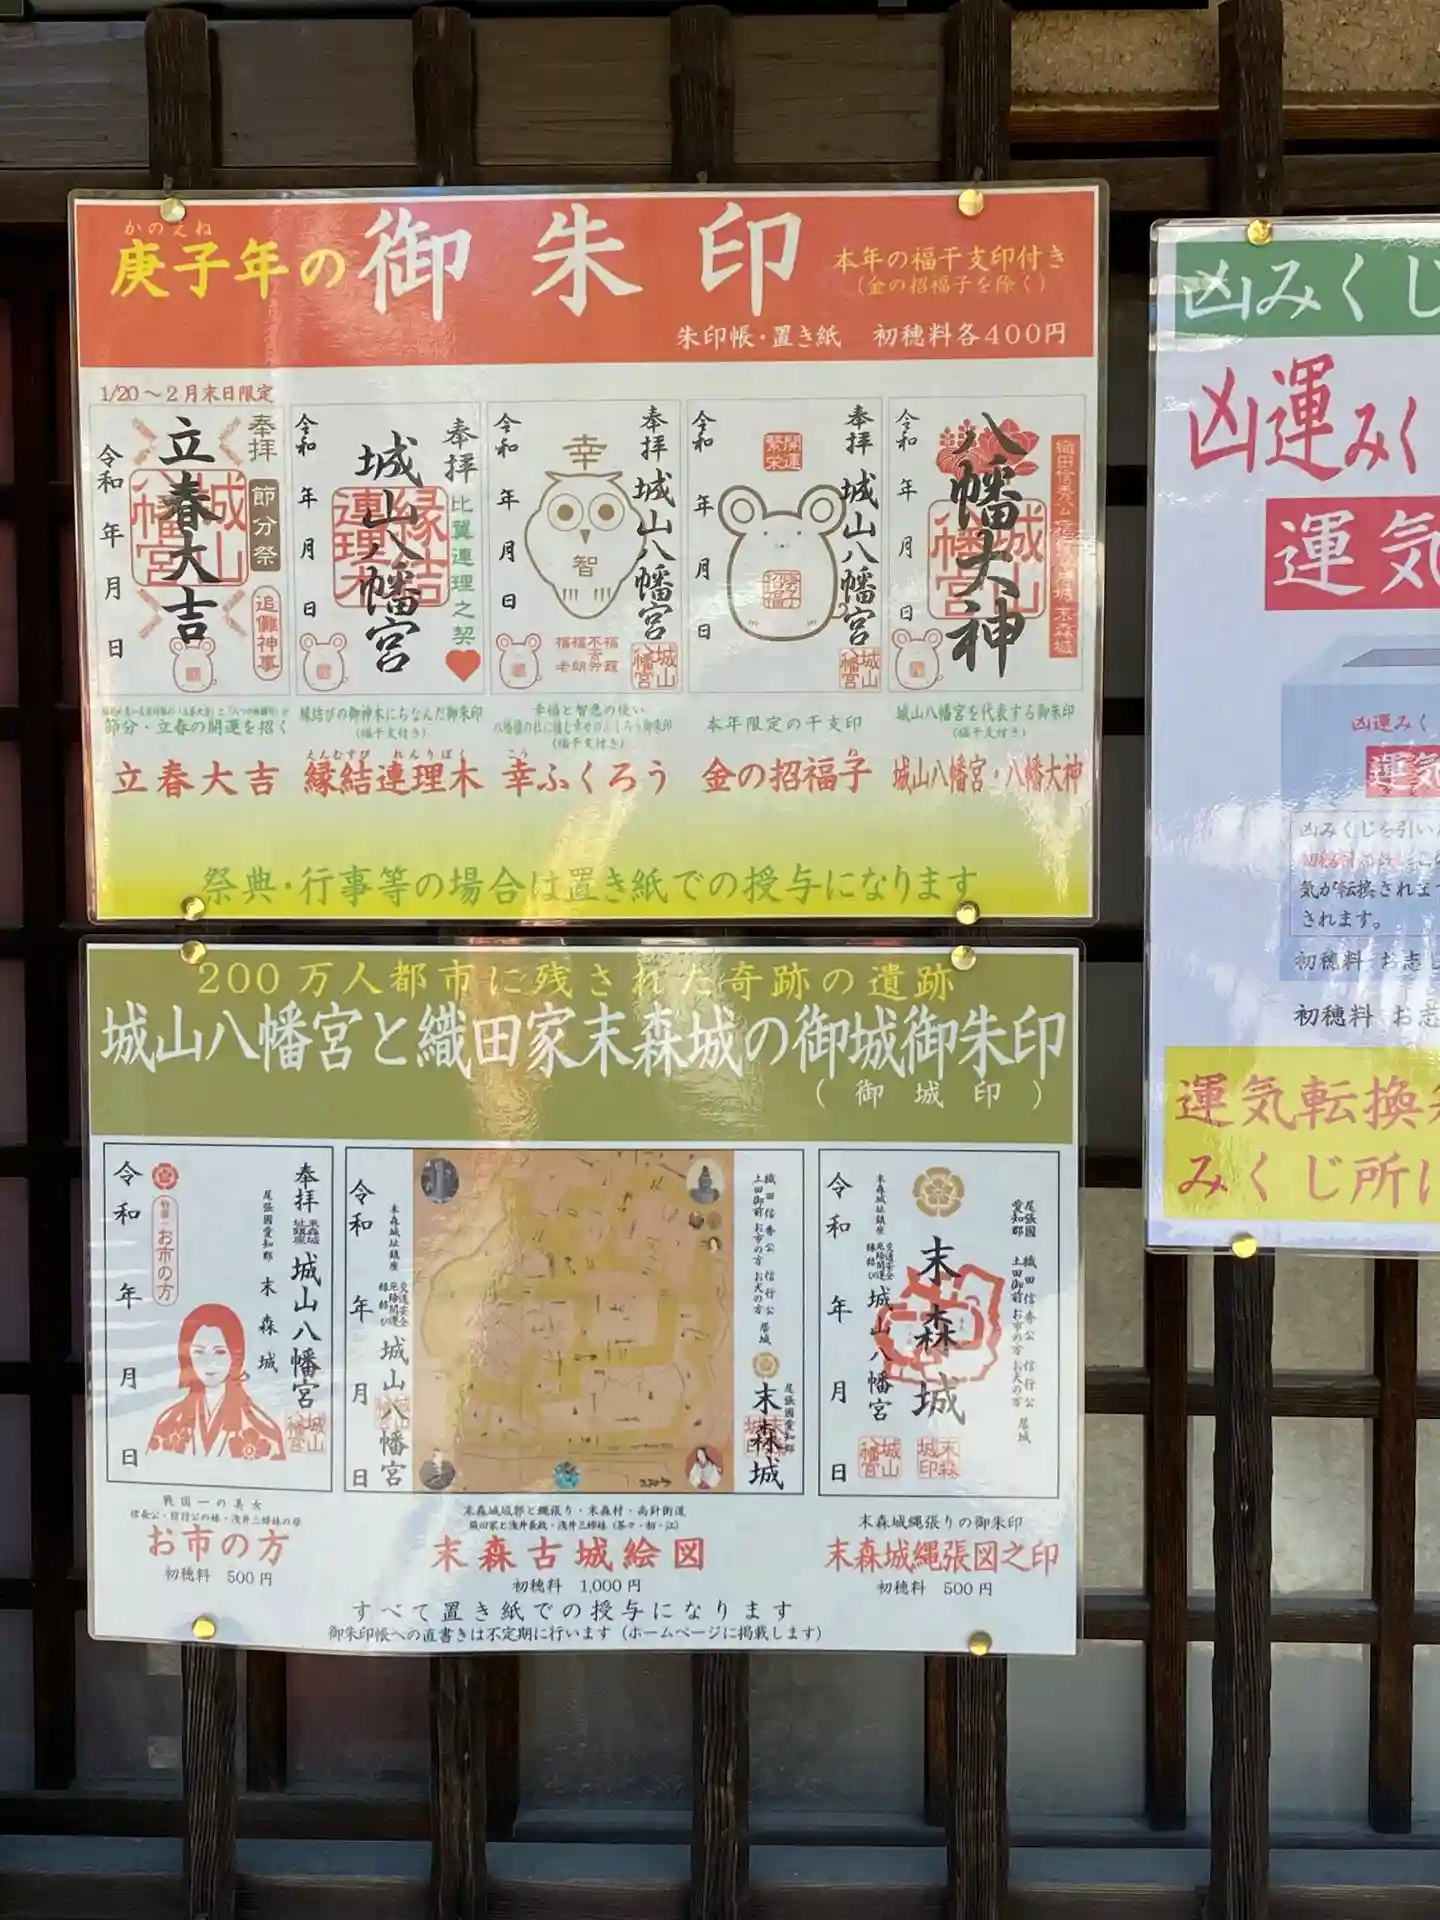 かのえね
庚子年の御朱印
本年の福干支印付き
(金の招福子を除く)
朱印帳・置き紙 初穂料各400円
1/20～2月末日限定
奉拝
節分祭
追儺神事
立春大吉
城山八幡宮
令和 年 月 日
節分・立春の開運を招く
立春大吉
奉拝
比翼連理之契
城山八幡宮
縁結連理木
令和 年 月 日
縁結びの御神木にちなんだ御朱印
(福干支付き)
えんむすび れんりぼく
縁結連理木
奉拝 城山八幡宮
城山八幡宮
幸
智
令和 年 月 日
幸福と智恵の使い
(福干支付き)
こう
幸ふくろう
奉拝 城山八幡宮
城山八幡宮
開運繁栄
令和 年 月 日
本年限定の干支印
ね
金の招福子
八幡大神
城山八幡宮
令和 年 月 日
城山八幡宮を代表する御朱印
(福干支付き)
城山八幡宮・八幡大神
祭典・行事等の場合は置き紙での授与になります
200万人都市に残された奇跡の遺跡
城山八幡宮と織田家末森城の御城御朱印
(御城印)
奉拝 城山八幡宮
城山八幡宮
尾張國愛知郡 末森城
お市の方
令和 年 月 日
戦国一の美女
信長公・信行公の妹・浅井三姉妹の母
お市の方
初穂料 500円
織田信秀公 信行公 居城
土田御前 お市の方 お犬の方
尾張國愛知郡
末森城
末森城址鎮座
交通安全
厄除開運
縁結び
城山八幡宮
令和 年 月 日
末森城城郭と縄張り・末森村・高針街道
織田家と浅井長政・浅井三姉妹(茶々・初・江)
末森古城絵図
初穂料 1,000円
尾張國愛知郡
織田信秀公 信行公 居城
土田御前 お市の方 お犬の方
末森城
末森城印
末森城址鎮座
交通安全
厄除開運
縁結び
城山八幡宮
城山八幡宮
令和 年 月 日
末森城縄張りの御朱印
末森城縄張図之印
初穂料 500円
すべて置き紙での授与になります
御朱印帳への直書きは不定期に行います(ホームページに掲載します)
凶みくじ
凶運みく
運気
凶運みく
運気
凶みくじを引い
気が転換されま
されます。
初穂料 お志し
初穂料 お志
運気転換
みくじ所に